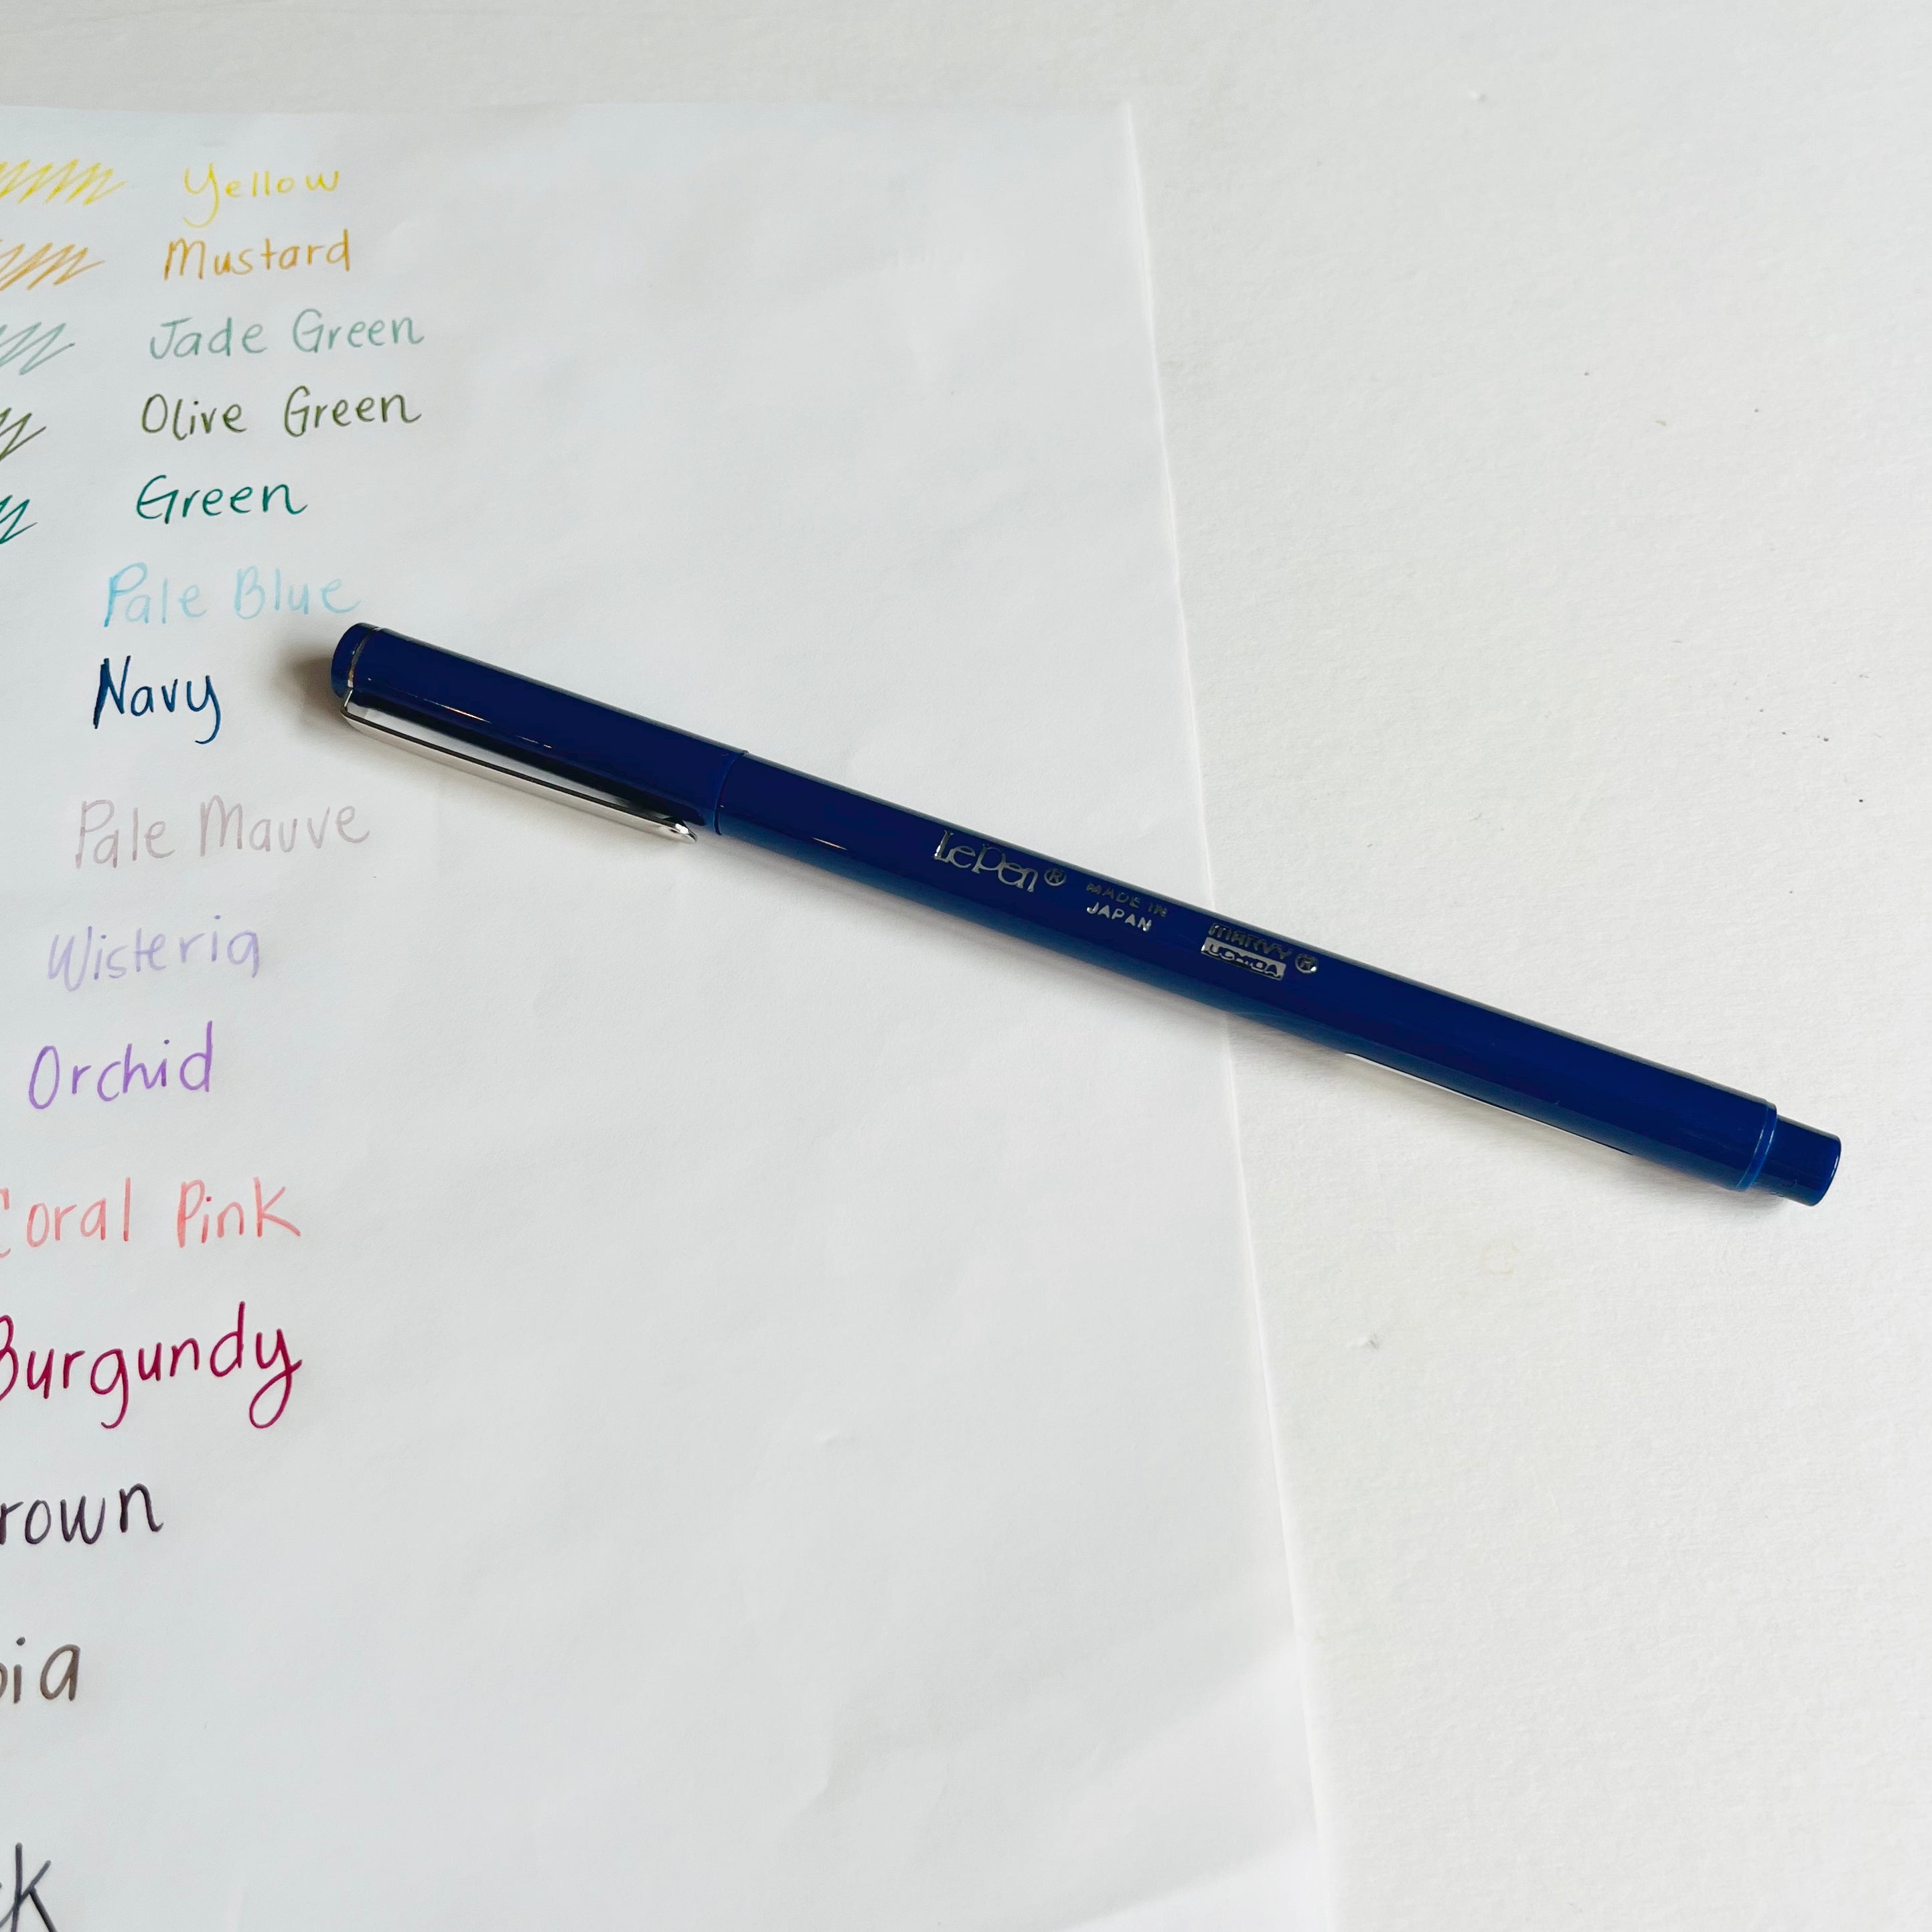 Yellow
Mustard
Jade Green
Olive Green
Green
Pale Blue
Navy
Pale Mauve
Wisteria
Orchid
Coral Pink
Burgundy
rown
pia
k
Le Pen®
MADE IN
JAPAN
MARVY®
UCHIDA